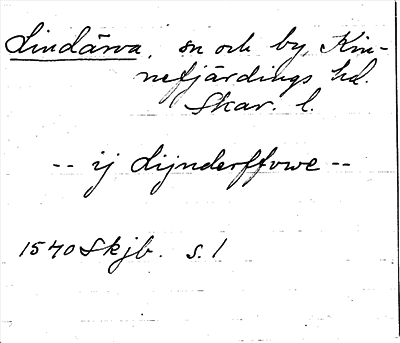 Lindärva, sn och by, Kin-
nefjärdings hd.
Skar. l.
-- ij Lijnderffvwe --
1540 Skjb. s. 1